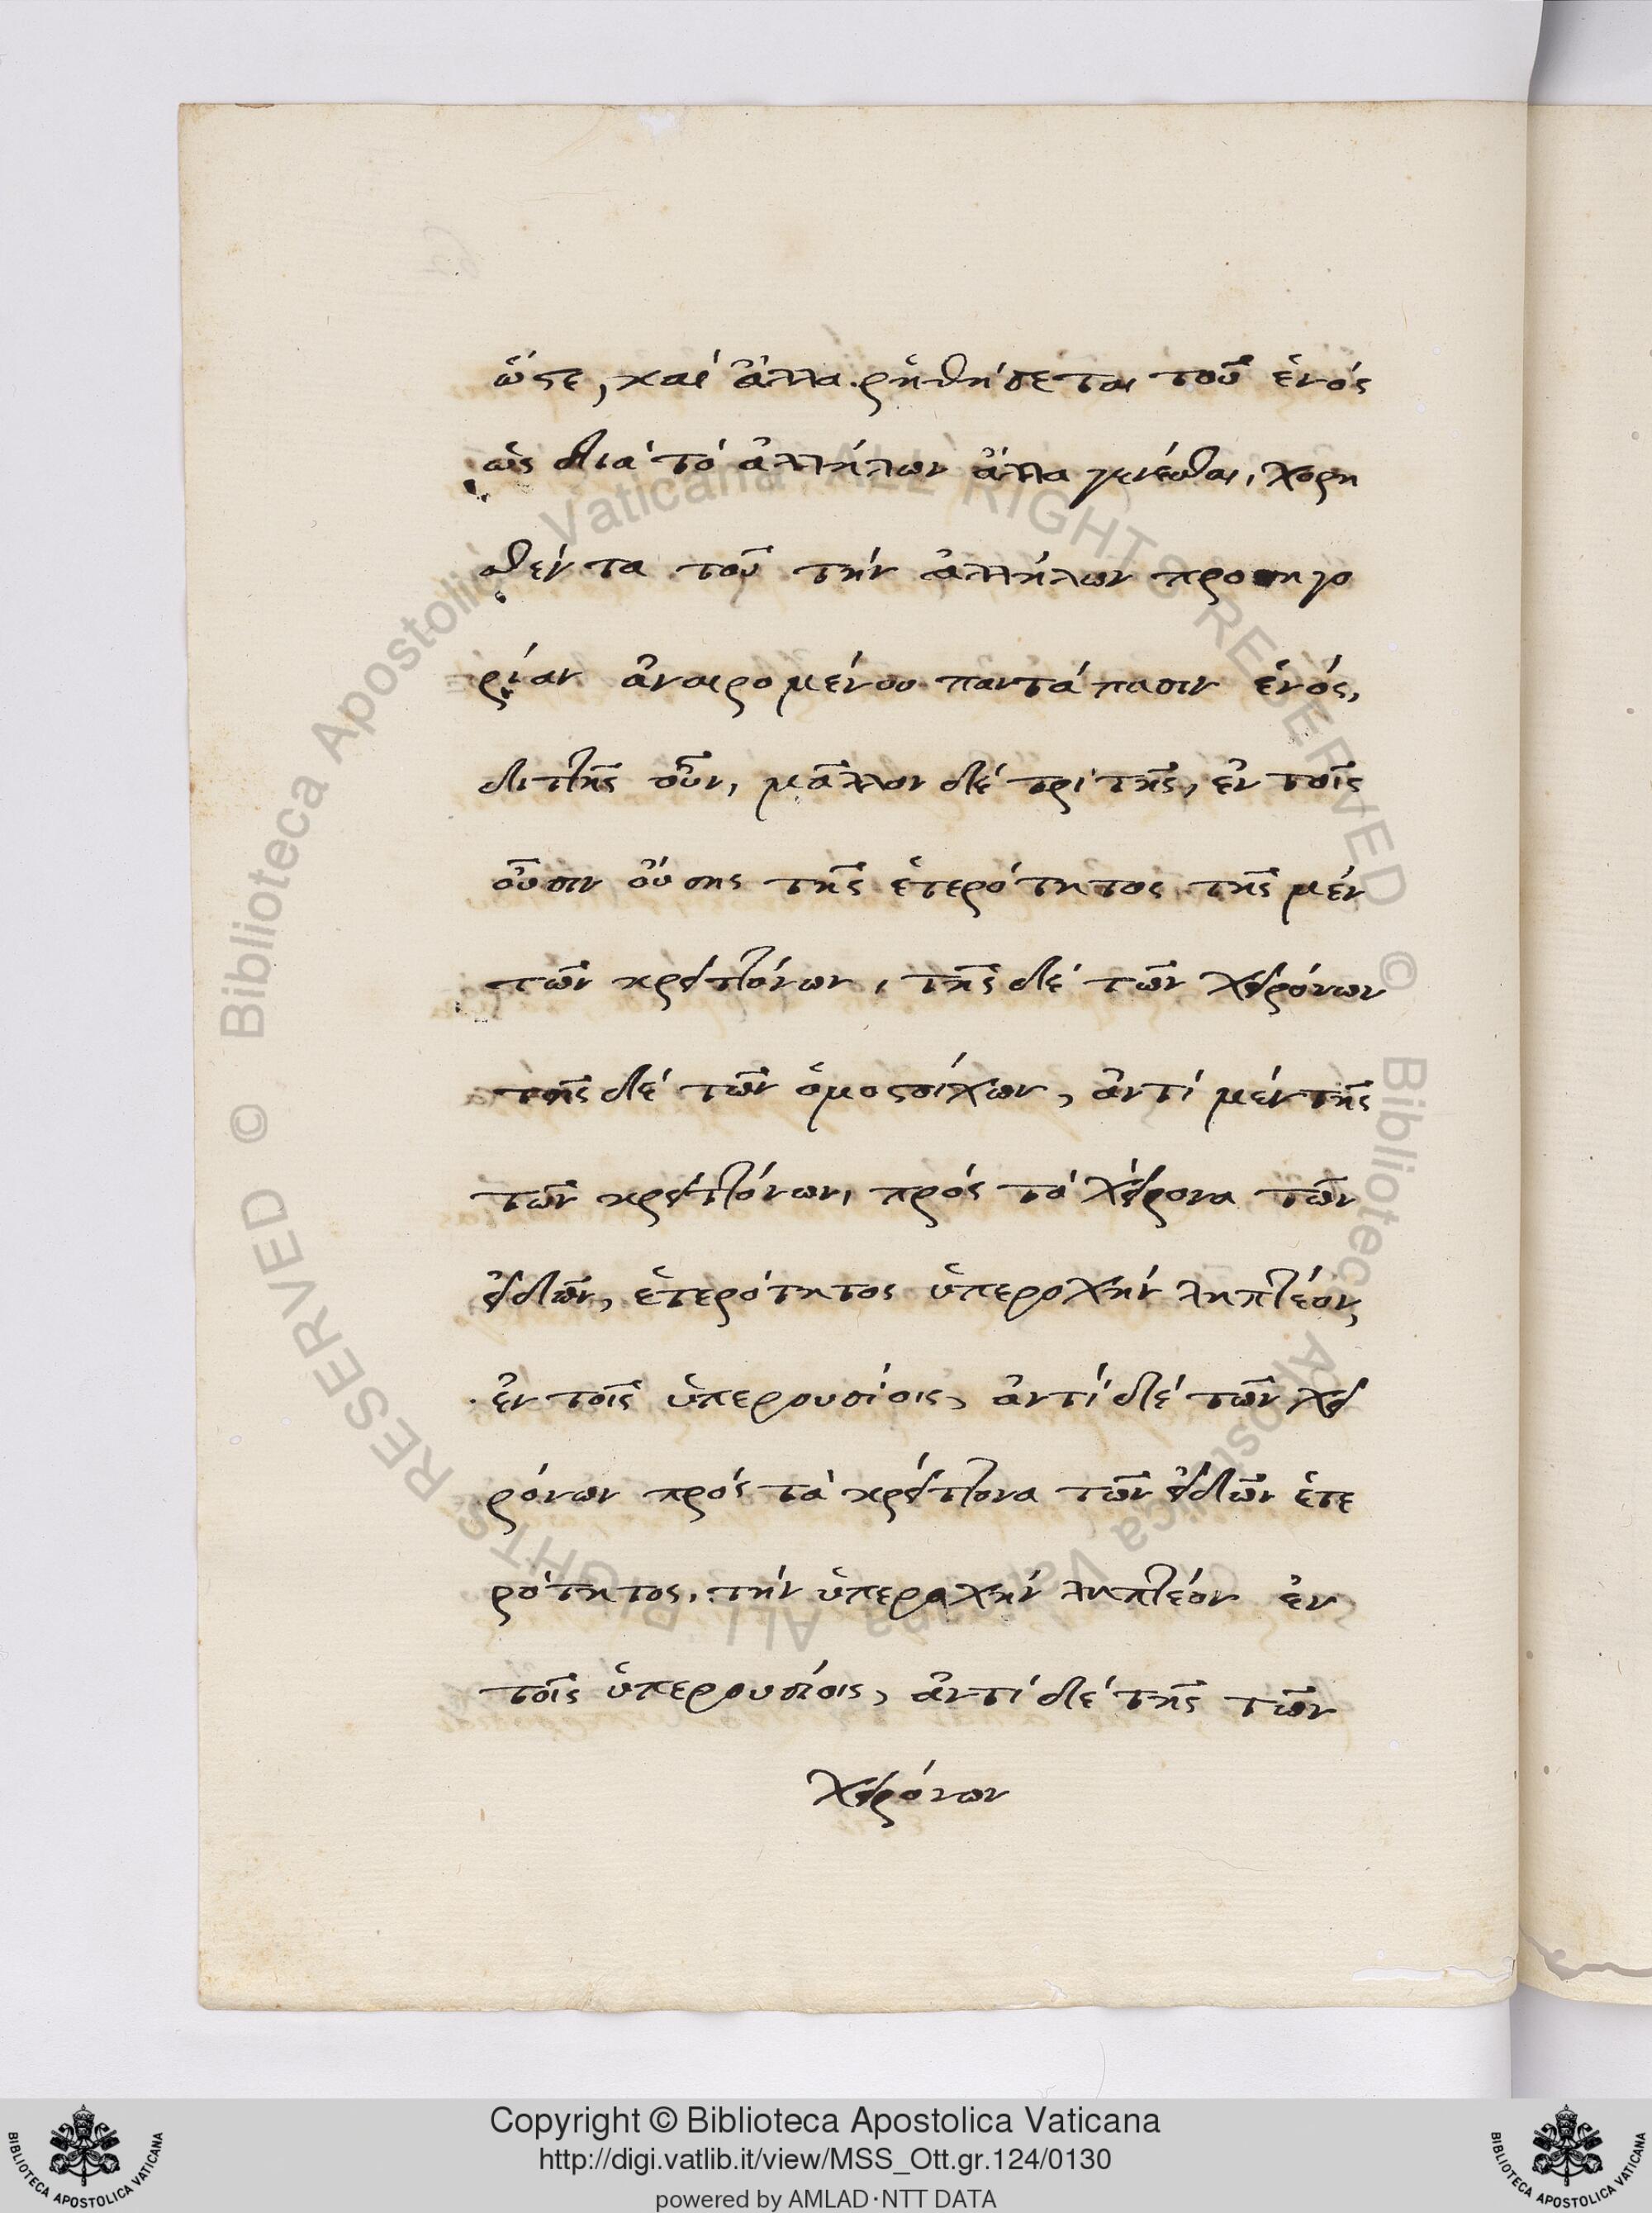 ὥστε, καὶ ἄλλα ῥηθήσεται τοῦ ἑνός
ὡς διὰ τὸ ἀλλήλων ἄλλα γενέσθαι, χορη
θέντα τοῦ τὴν ἀλλήλων προσηγο
ρίαν ἀναιρομένου παντάπασιν ἑνός,
διττῆς οὖν, μᾶλλον δὲ τριτῆς, ἐν τοῖς
οὖσιν οὔσης τῆς ἑτερότητος τῆς μὲν
τῶν κρειττόνων, τῆς δὲ τῶν χειρόνων
τῆς δὲ τῶν ὁμοστοίχων, ἀντὶ μὲν τῆς
τῶν κρειττόνων, πρὸς τὰ χείρονα τῶν
εἰδῶν, ἑτερότητος ὑπεροχὴν ληπτέον,
ἐν τοῖς ὑπερουσίοις, ἀντὶ δὲ τῶν χει
ρόνων πρὸς τὰ κρείττονα τῶν εἰδῶν ἑτε
ρότητος, τὴν ὑπεροχὴν ληπτέον ἐν
τοῖς ὑπερουσίοις, ἀντὶ δὲ τῆς τῶν
χειρόνων
Copyright © Biblioteca Apostolica Vaticana
http://digi.vatlib.it/view/MSS_Ott.gr.124/0130
powered by AMLAD·NTT DATA
BIBLIOTECA APOSTOLICA VATICANA
BIBLIOTECA APOSTOLICA VATICANA
© Biblioteca Apostolica Vaticana ALL RIGHTS RESERVED
© Biblioteca Apostolica Vaticana ALL RIGHTS RESERVED